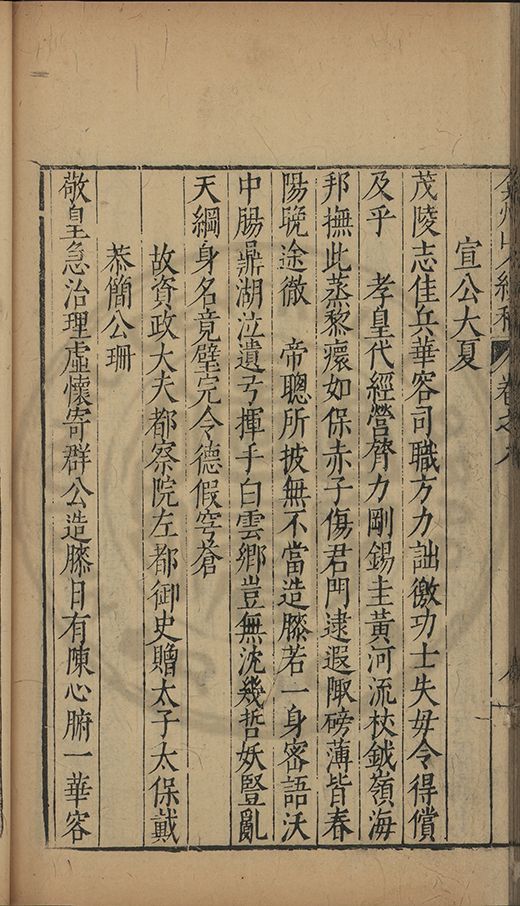 卷之八
宣公大夏
茂陵志佳兵華容司職方力詘徼功士失毋令得償
及乎　孝皇代經營膂力剛錫圭黃河流杖鉞嶺海
邦撫此蒸黎瘝如保赤子傷君門逮遐陬磅薄皆春
陽晚途徹　帝聰所披無不當造膝若一身密語沃
中腸鼎湖泣遺弓揮手白雲鄉豈無沈幾哲妖豎亂
天綱身名竟璧完令德假穹蒼
故資政大夫都察院左都御史贈太子太保戴
恭簡公珊
敬皇急治理虛懷寄群公造膝日有陳心腑一華容